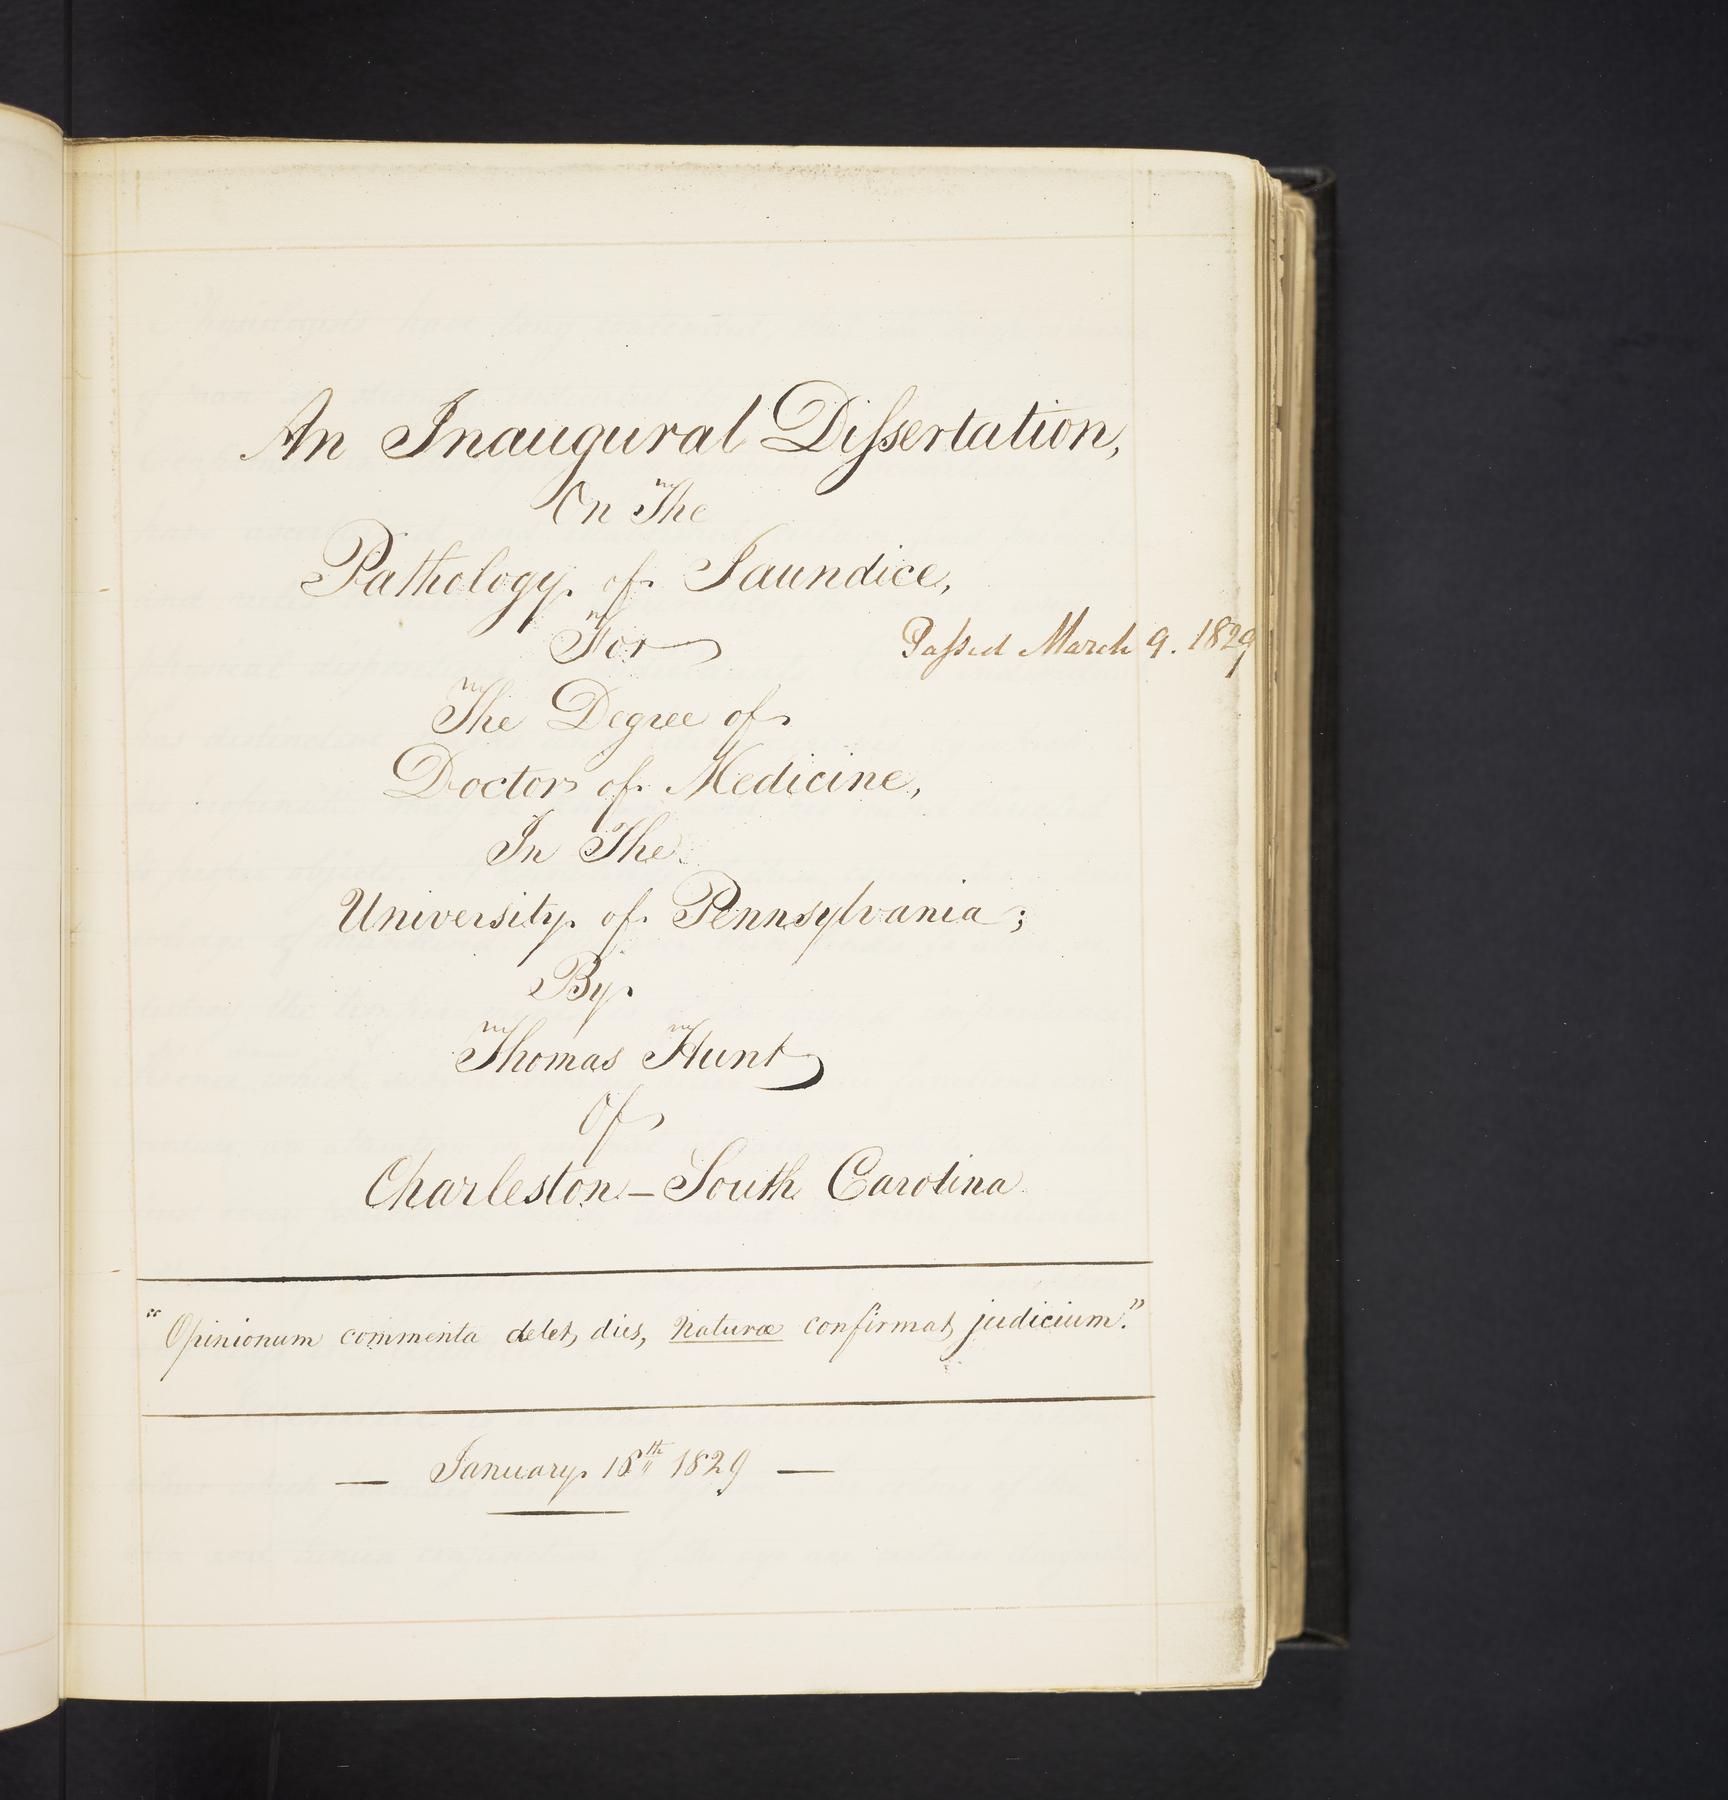 An Inaugural Dissertation,
On The
Pathology of Jaundice,
For
Passed March 9. 1829
The Degree of
Doctor of Medicine,
In The
University of Pennsylvania;
By
Thomas Hunt
Of
Charleston – South Carolina
"Opinionum commenta delet, dies, Naturæ confirmat judicium."
— January 18th 1829 —